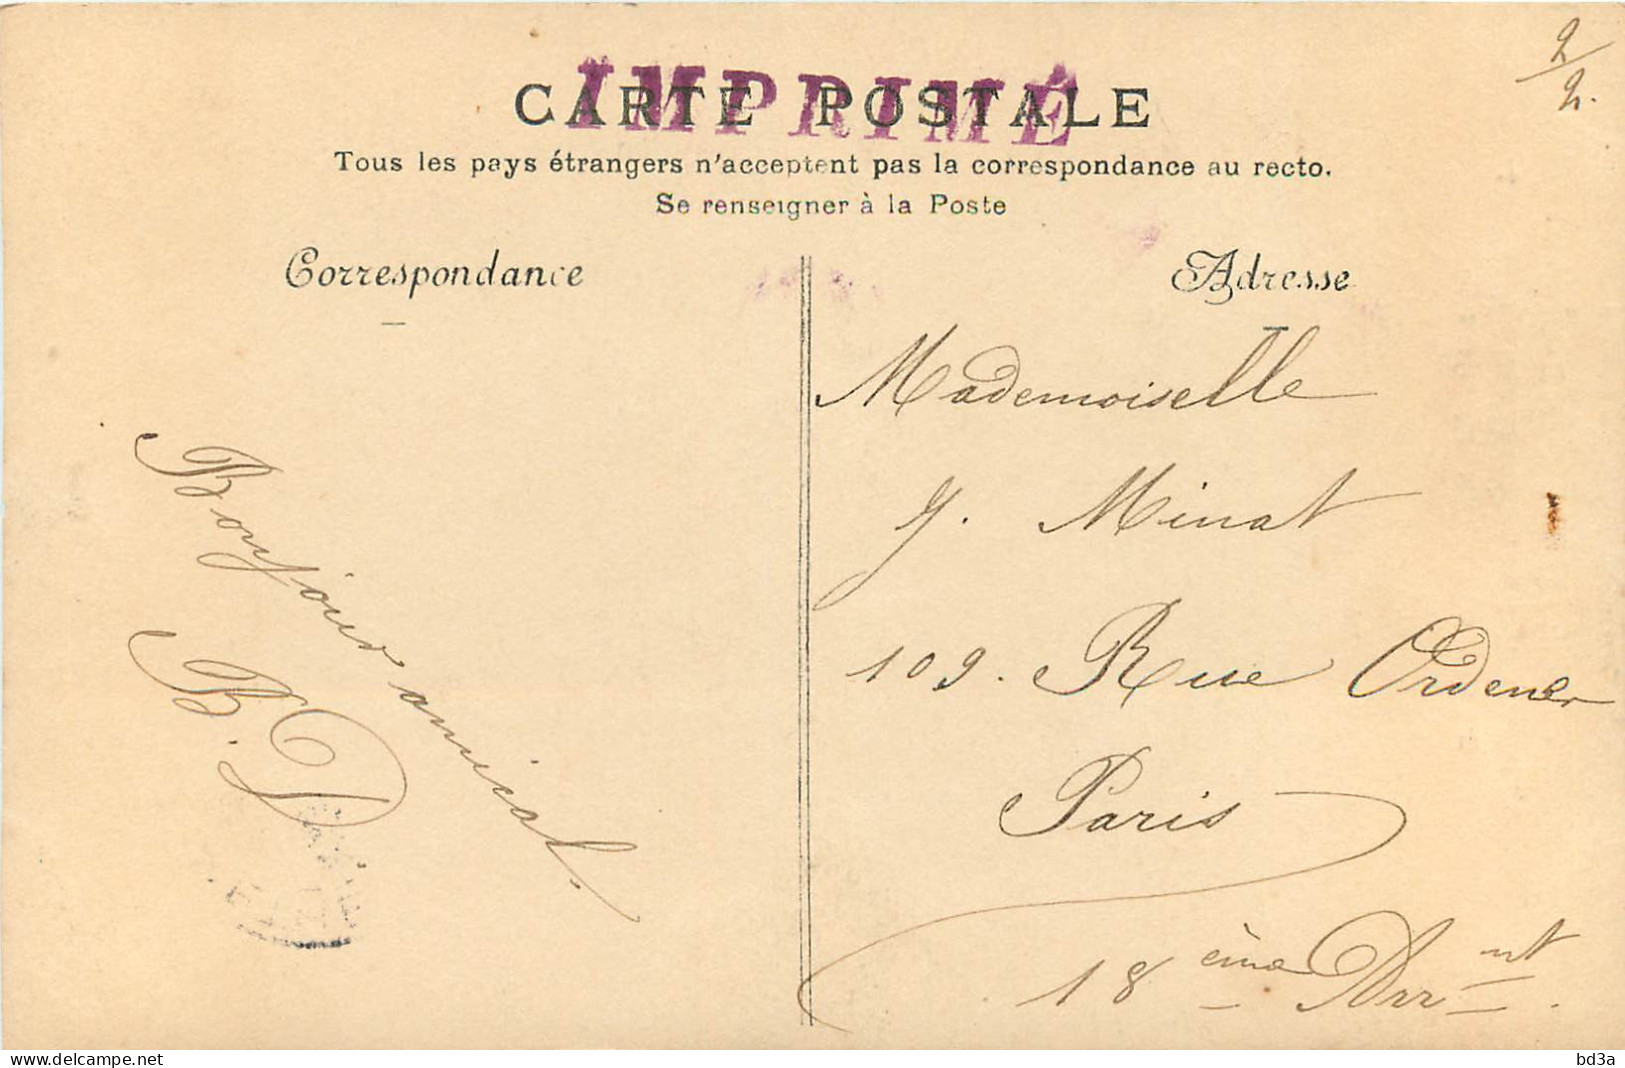 2/2.
IMPRIMÉ
CARTE POSTALE
Tous les pays étrangers n'acceptent pas la correspondance au recto.
Se renseigner à la Poste
Correspondance
Bonjour amical.
B. D
Adresse
Mademoiselle
Y. Minat
109. Rue Ordener
Paris
18 ème Arr nt.
www.delcampe.net
bd3a